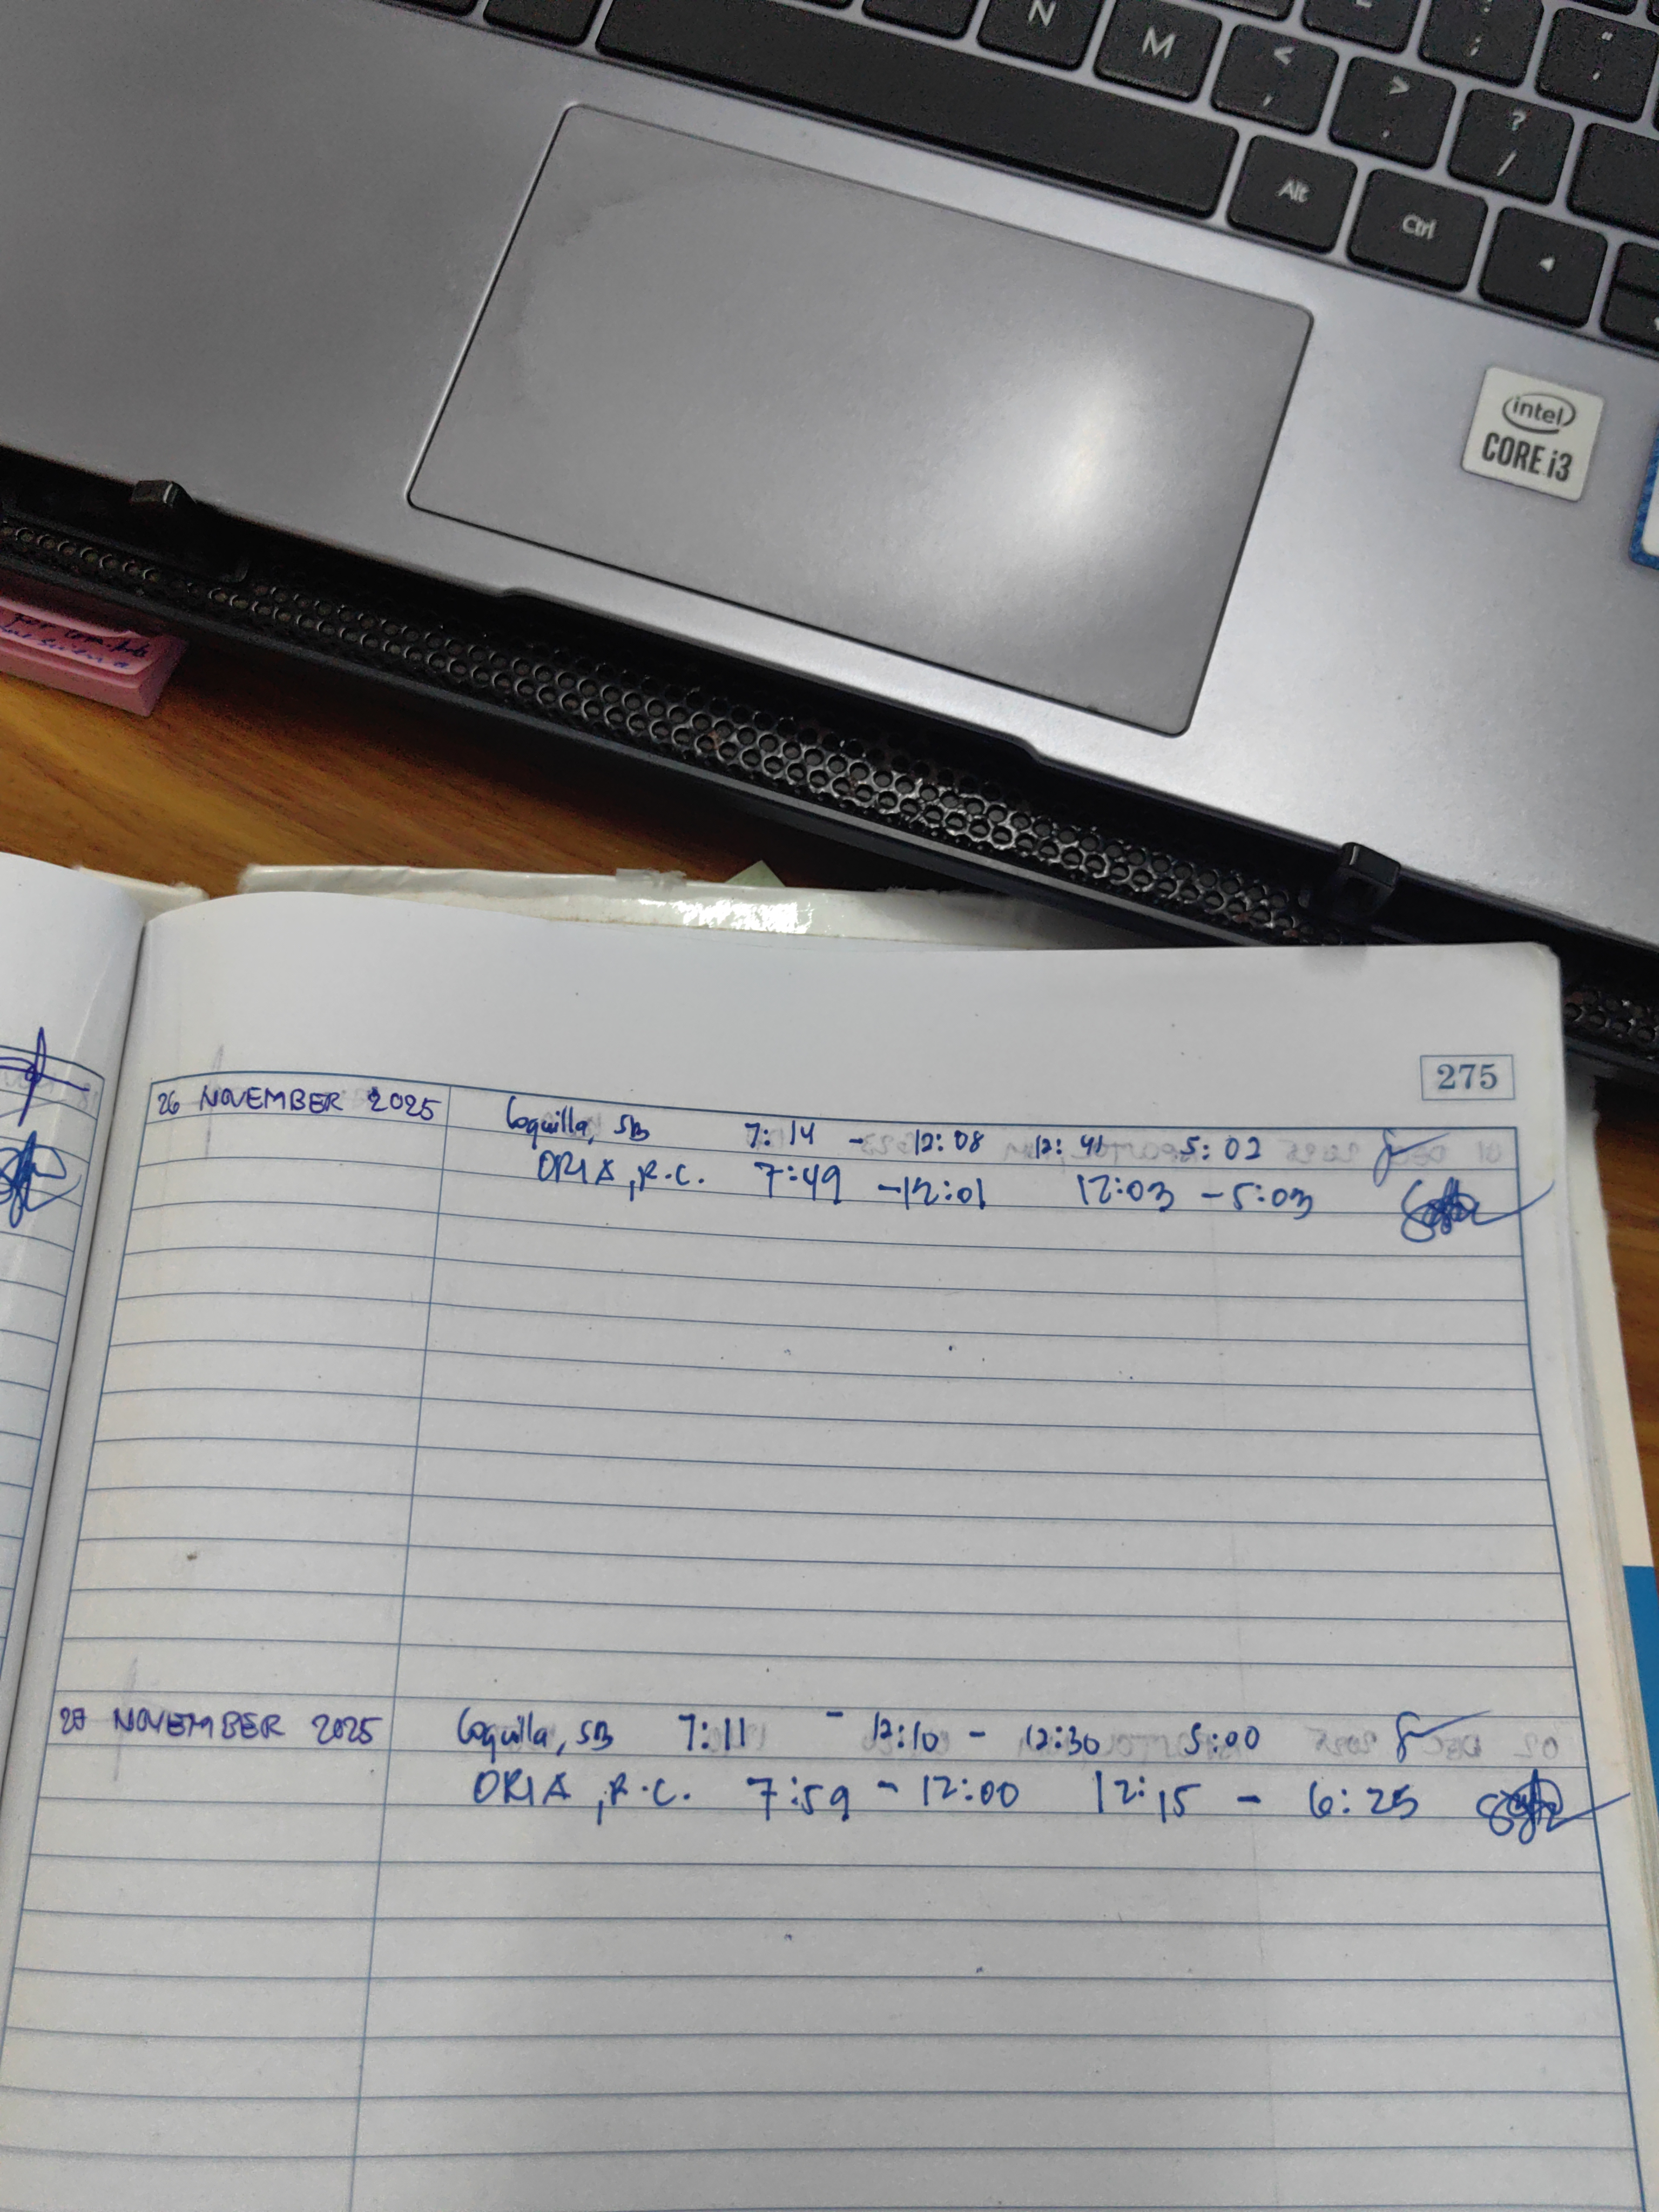 N M < , > . : ; " ' ? /
Alt Ctrl
intel
CORE i3
275
26 NOVEMBER 2025 Coquilla, SB 7:14 - 12:08 12:41 5:02
ORIA, R.C. 7:49 - 12:01 12:03 - 5:03
27 NOVEMBER 2025 Coquilla, SB 7:11 - 12:10 - 12:30 5:00
ORIA, R.C. 7:59 - 12:00 12:15 - 6:25